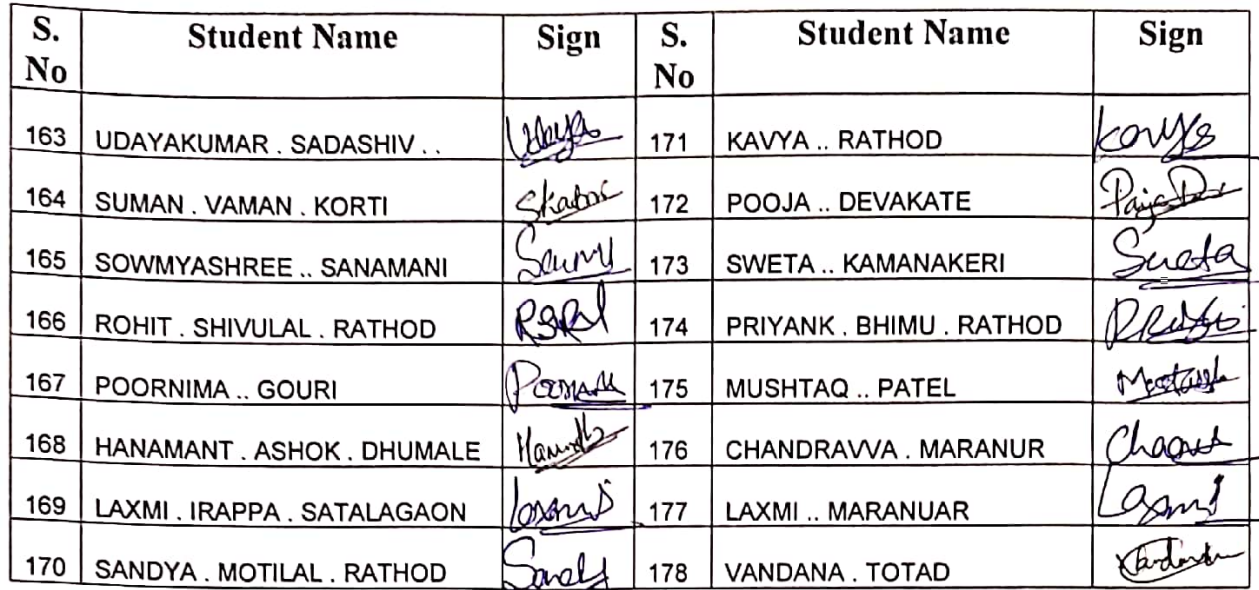 S. No Student Name Sign S. No Student Name Sign
163 UDAYAKUMAR . SADASHIV . . Udaya 171 KAVYA .. RATHOD Kavya
164 SUMAN . VAMAN . KORTI 172 POOJA .. DEVAKATE
165 SOWMYASHREE .. SANAMANI 173 SWETA .. KAMANAKERI Sweta
166 ROHIT . SHIVULAL . RATHOD 174 PRIYANK . BHIMU . RATHOD
167 POORNIMA .. GOURI 175 MUSHTAQ .. PATEL
168 HANAMANT . ASHOK . DHUMALE 176 CHANDRAVVA . MARANUR
169 LAXMI . IRAPPA . SATALAGAON 177 LAXMI .. MARANUAR Laxmi
170 SANDYA . MOTILAL . RATHOD 178 VANDANA . TOTAD